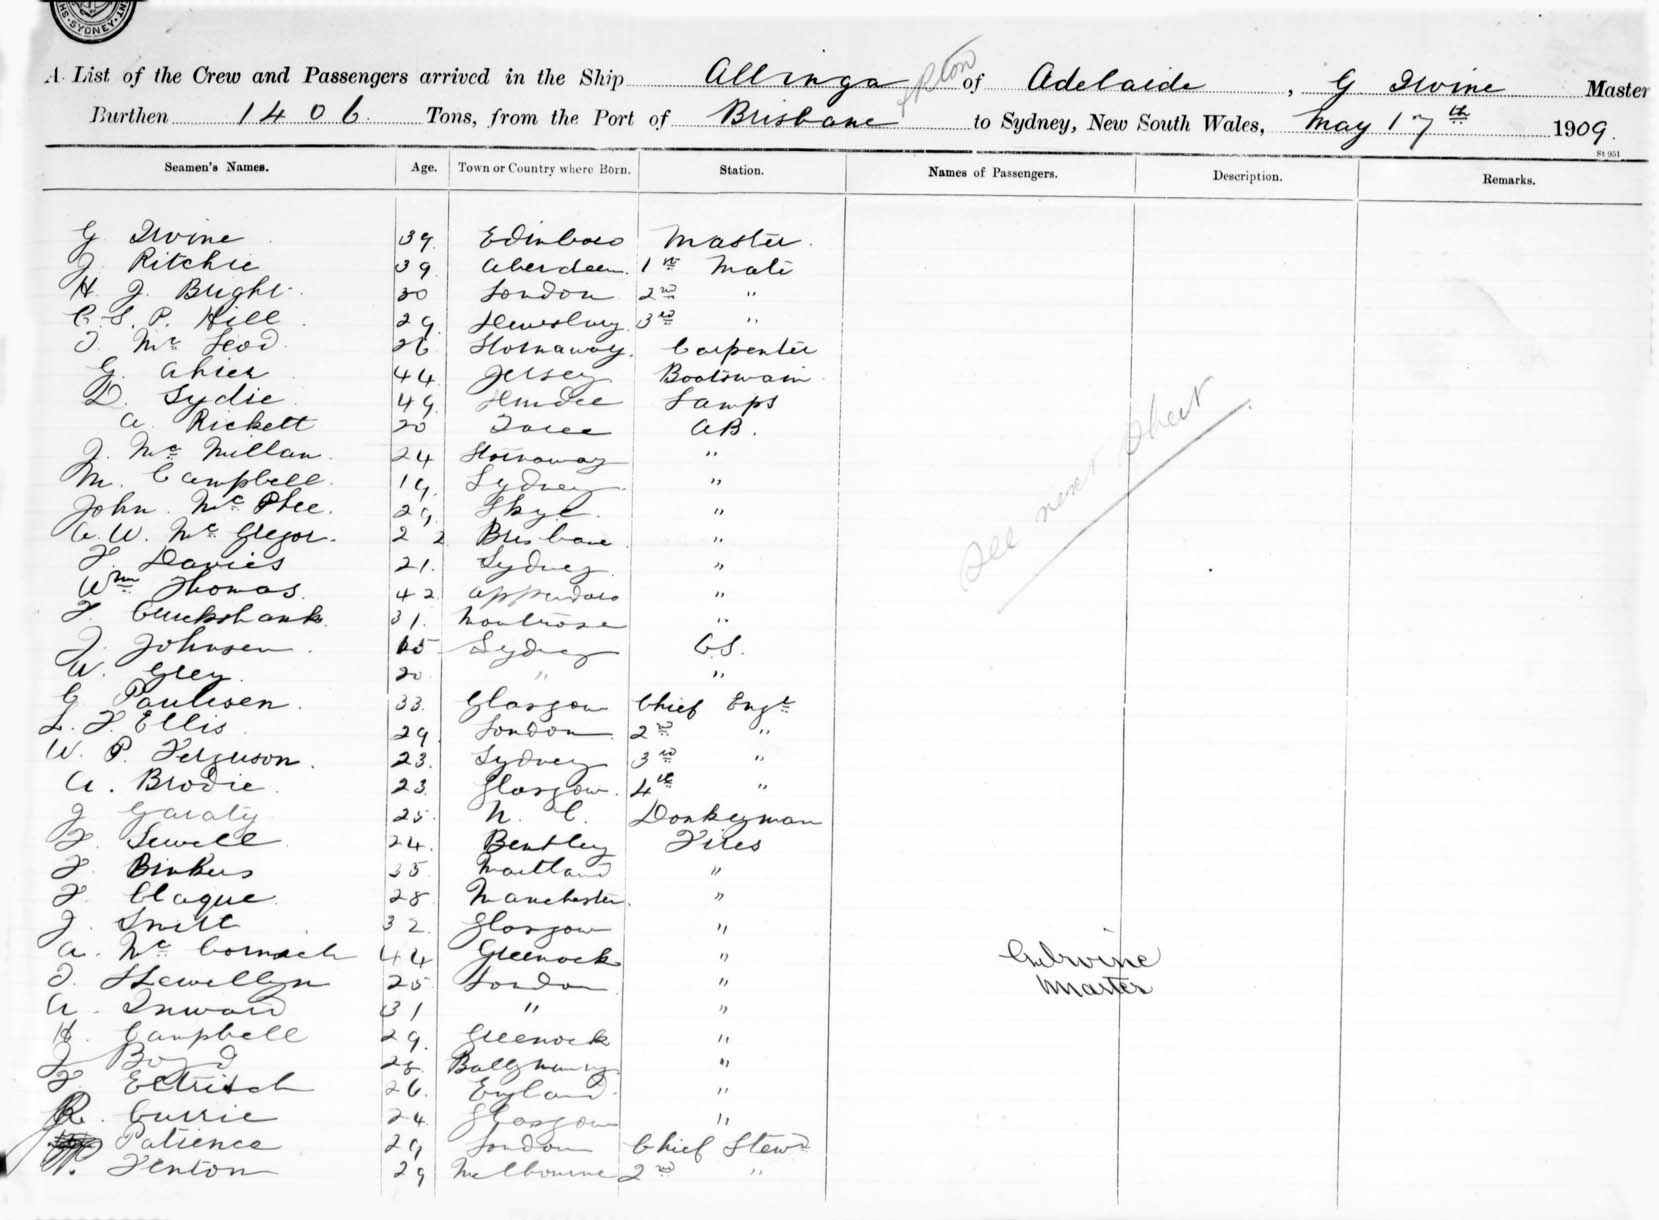 SYDNEY
A List of the Crew and Passengers arrived in the Ship Allinga of Adelaide, G Irvine Master
Burthen 1406 Tons, from the Port of Brisbane to Sydney, New South Wales, May 17th 1909.
St 951
Seamen's Names. Age. Town or Country where Born. Station. Names of Passengers. Description. Remarks.
G Irvine 39. Edinboro Master.
J. Ritchie 39 Aberdeen. 1st Mate
H. J. Bright. 30 London 2nd "
C. S. P. Hill. 29. Dewsbury. 3rd "
D. Mc Leod. 26 Stornaway. Carpenter
G. Ahier 44 Jersey Boatswain
D. Lydie. 49. Dundee Lamps
A. Rickett 20 Taree AB.
J. Mc Millan. 24 Stornaway "
M. Campbell. 19. Sydney. "
John Mc Phee. 29. Skye. "
A. W. Mc Gregor. 22 Brisbane "
F. Davies 21. Sydney. "
Wm Thomas. 42. "
F. Cruickshank. 31. Montrose "
J. Johnsen. 15 Sydney O.S.
W. Grey. 20 " "
G. Paulisen. 33. Glasgow Chief Engr
L. F. Ellis 29. London 2nd "
W. P. Ferguson. 23. Sydney 3rd "
A. Brodie. 23. Glasgow. 4th "
J Garaty. 25. N. C. Donkeyman
F. Sewell. 24. Bentley Fires
F. Binkers 35 Maitland "
F. Clague. 28 Manchester. "
J. Smith 32. Glasgow "
A. Mc Cormack 44 Greenock "
D. Llewellyn 25 London "
A. Inward 31 " "
H. Campbell 29. Greenock "
J. Boyd 28. "
F. 26. England. "
R. Currie 24. Glasgow "
Patience 29 London Chief Stewd
F. Fenton 29 Melbourne 2nd "
See next sheet
G. Irvine
Master